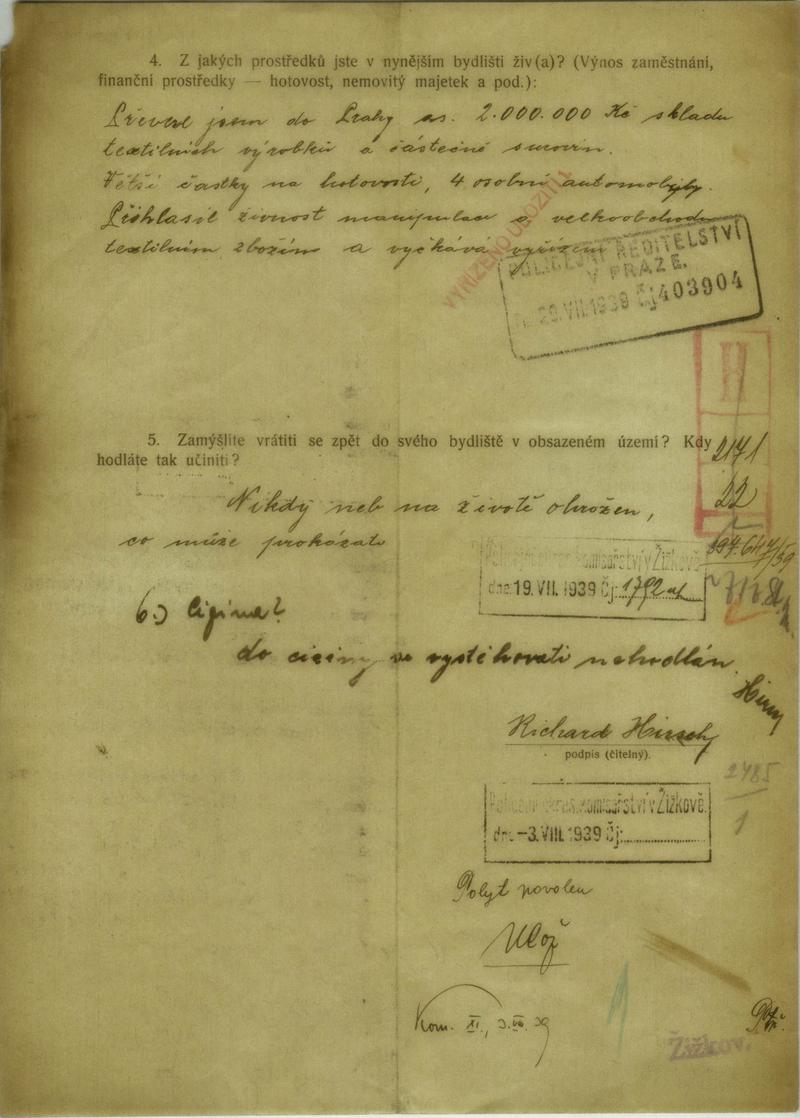 4. Z jakých prostředků jste v nynějším bydlišti živ(a)? (Výnos zaměstnání,
finanční prostředky — hotovost, nemovitý majetek a pod.):
Převezl jsem do Prahy as. 2.000.000 Kč skladu
textilních výrobků a částečně surovin.
Větší částky na hotovosti, 4 osobní automobily.
Přihlásil živnost manipulace a velkoobchodu
textilním zbožím a vyčkává vyřízení
VYŘÍZENO ULOŽITI
POLICEJNÍ ŘEDITELSTVÍ
V PRAZE.
29.VII.1939 Čj 403904
H
5. Zamýšlíte vrátiti se zpět do svého bydliště v obsazeném území? Kdy
hodláte tak učiniti?
2171
22
Nikdy neb na životě ohrožen,
co může prokázati
komařství v Žižkově
dne: 19. VII. 1939 Čj: 1792
6.)
do ciziny se vystěhovati nehodlám.
Richard Hirsch
podpis (čitelný).
2785
1
komisařství v Žižkově.
dne -3. VIII. 1939 Čj:
Pobyt povolen
Ulož
Kom. XI., 3. VIII. 39
Žižkov.